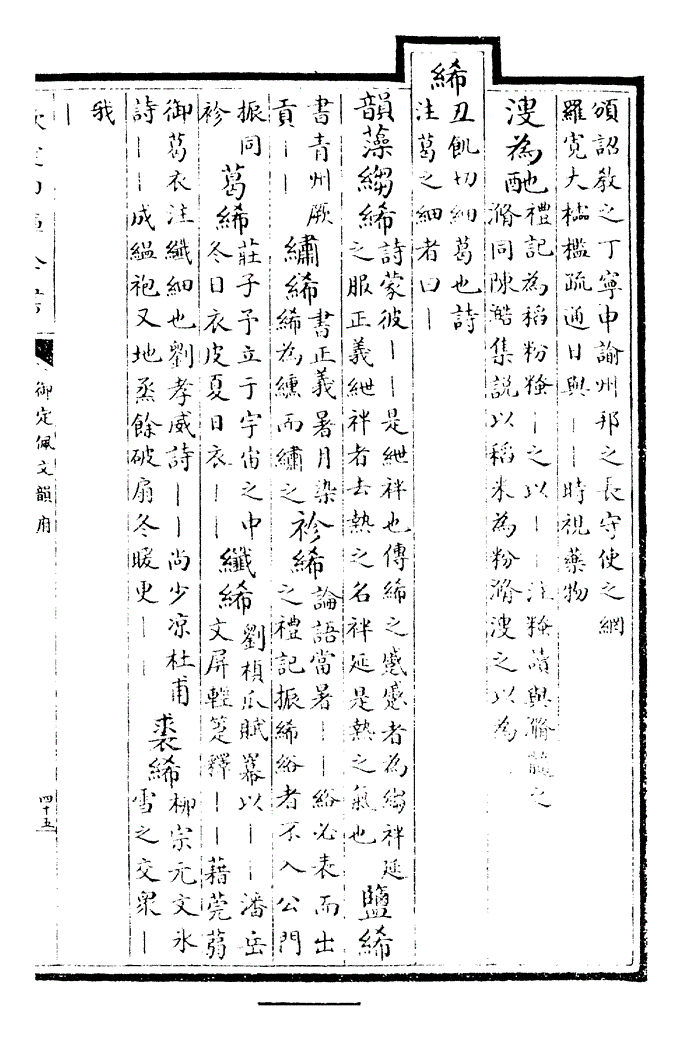 頒詔教之丁寧申諭州邦之長守使之網
羅寛大櫺檻疏通日與｜｜時視藥物
溲為酏禮記為稻粉糔｜之以｜｜注糔讀與滫髓之
滫同陳澔集説以稻米為粉滫溲之以為
絺
丑飢切細葛也詩
注葛之細者曰｜
韻藻縐絺詩蒙彼｜｜是紲袢也傳絺之蹙蹙者為縐袢延
之服正義紲袢者去熱之名袢延是熱之氣也鹽絺
書青州厥
貢｜｜繡絺書正義暑月染
絺為纁而繡之袗絺論語當暑｜｜綌必表而出
之禮記振絺綌者不入公門
振同
袗葛絺莊子予立于宇宙之中
冬日衣皮夏日衣｜｜纖絺劉楨瓜賦幂以｜｜潘岳
文屏輕箑釋｜｜藉莞蒻
御葛衣注纖細也劉孝威詩｜｜尚少凉杜甫
詩｜｜成緼袍又地蒸餘破扇冬暖更｜｜裘絺柳宗元文氷
雪之交衆｜
我
｜
欽定四庫全書
御定佩文韻府
四十五